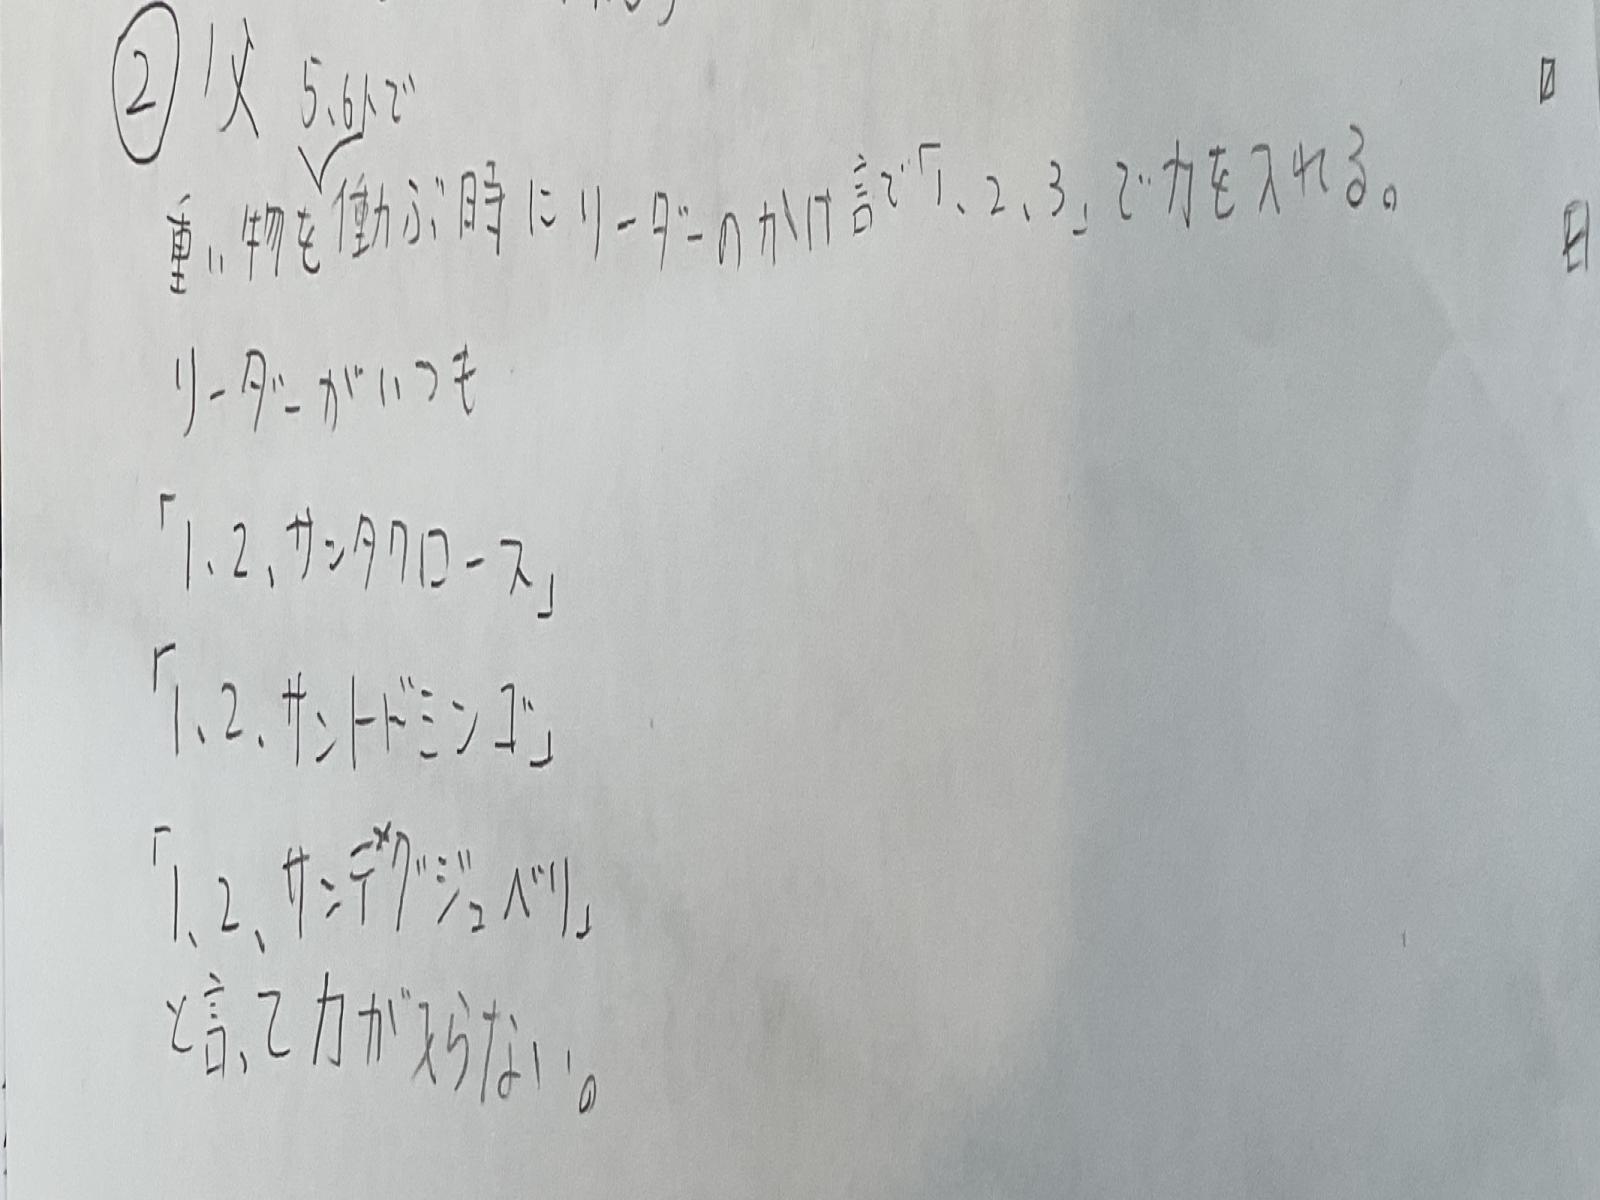 ② 父
5、6人で
重い物を働ぶ時にリーダーのかけ言で「1、2、3」で力を入れる。
リーダーがいつも
「1、2、サンタクロース」
「1、2、サントドミンゴ」
「1、2、サンデグジュベリ」
と言って力が入らない。